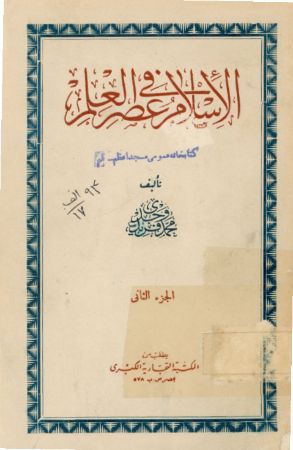 الإسلام في عصر العلم
كتابخانه عمومی مسجد اعظم - قم
تأليف
محمد فريد وجدى
٩٤ الف
١٧
الجزء الثانى
يطلب من
المكتبة التجارية الكبرى
بمصر ص ب ٥٧٨